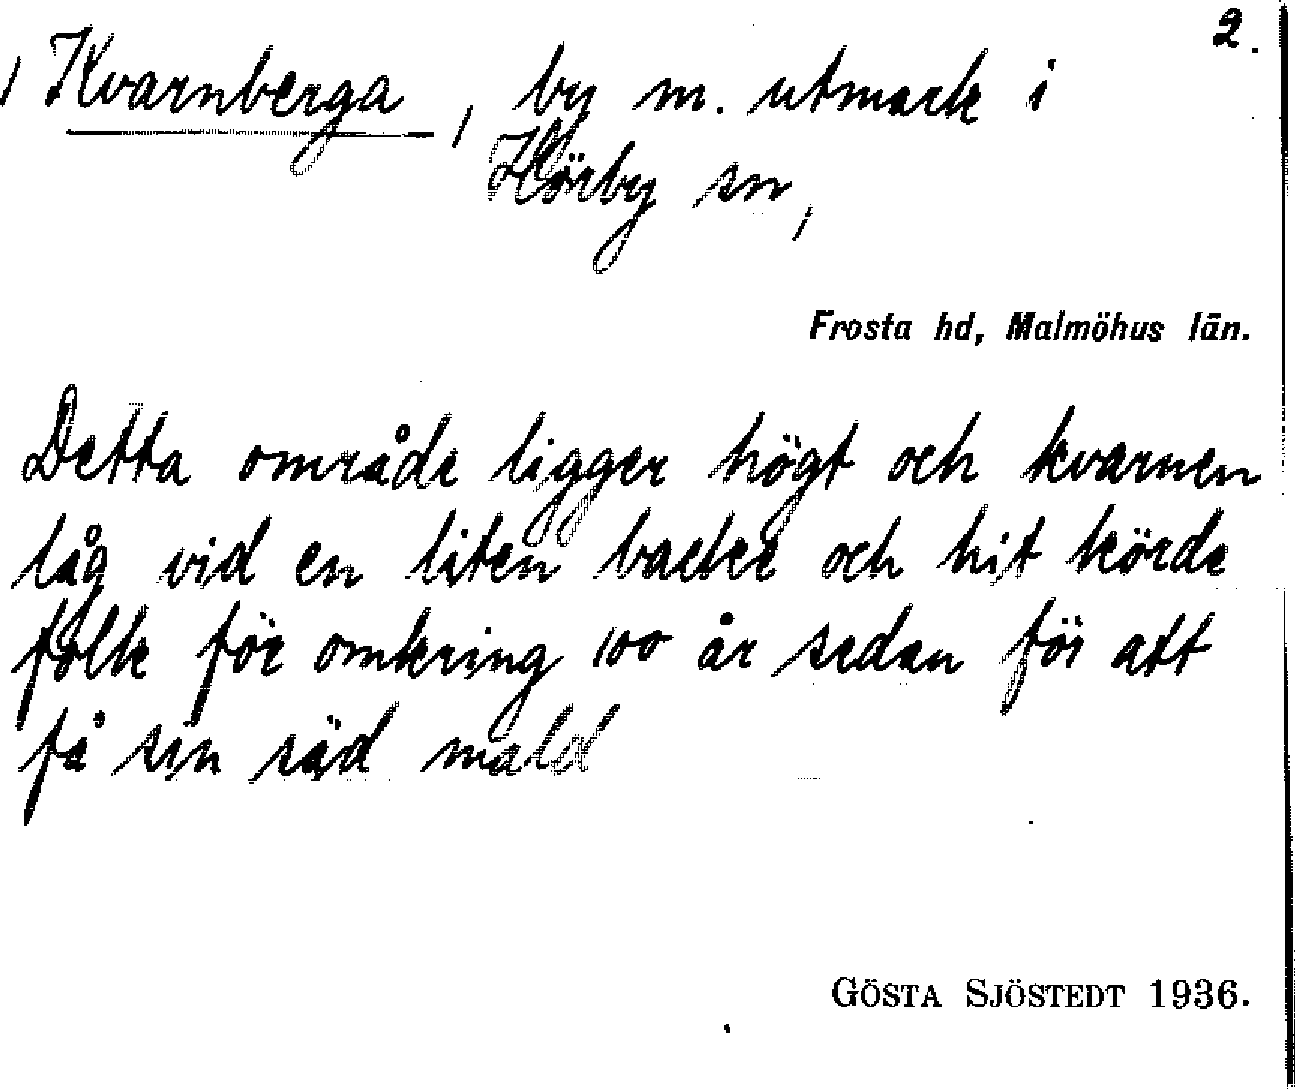 2.
Kvarnberga, by m. utmark i
Hörby sn,
Frosta hd, Malmöhus län.
Detta område ligger högt och kvarnen
låg vid en liten backe och hit körde
folk för omkring 100 år sedan för att
få sin säd mald
GÖSTA SJÖSTEDT 1936.